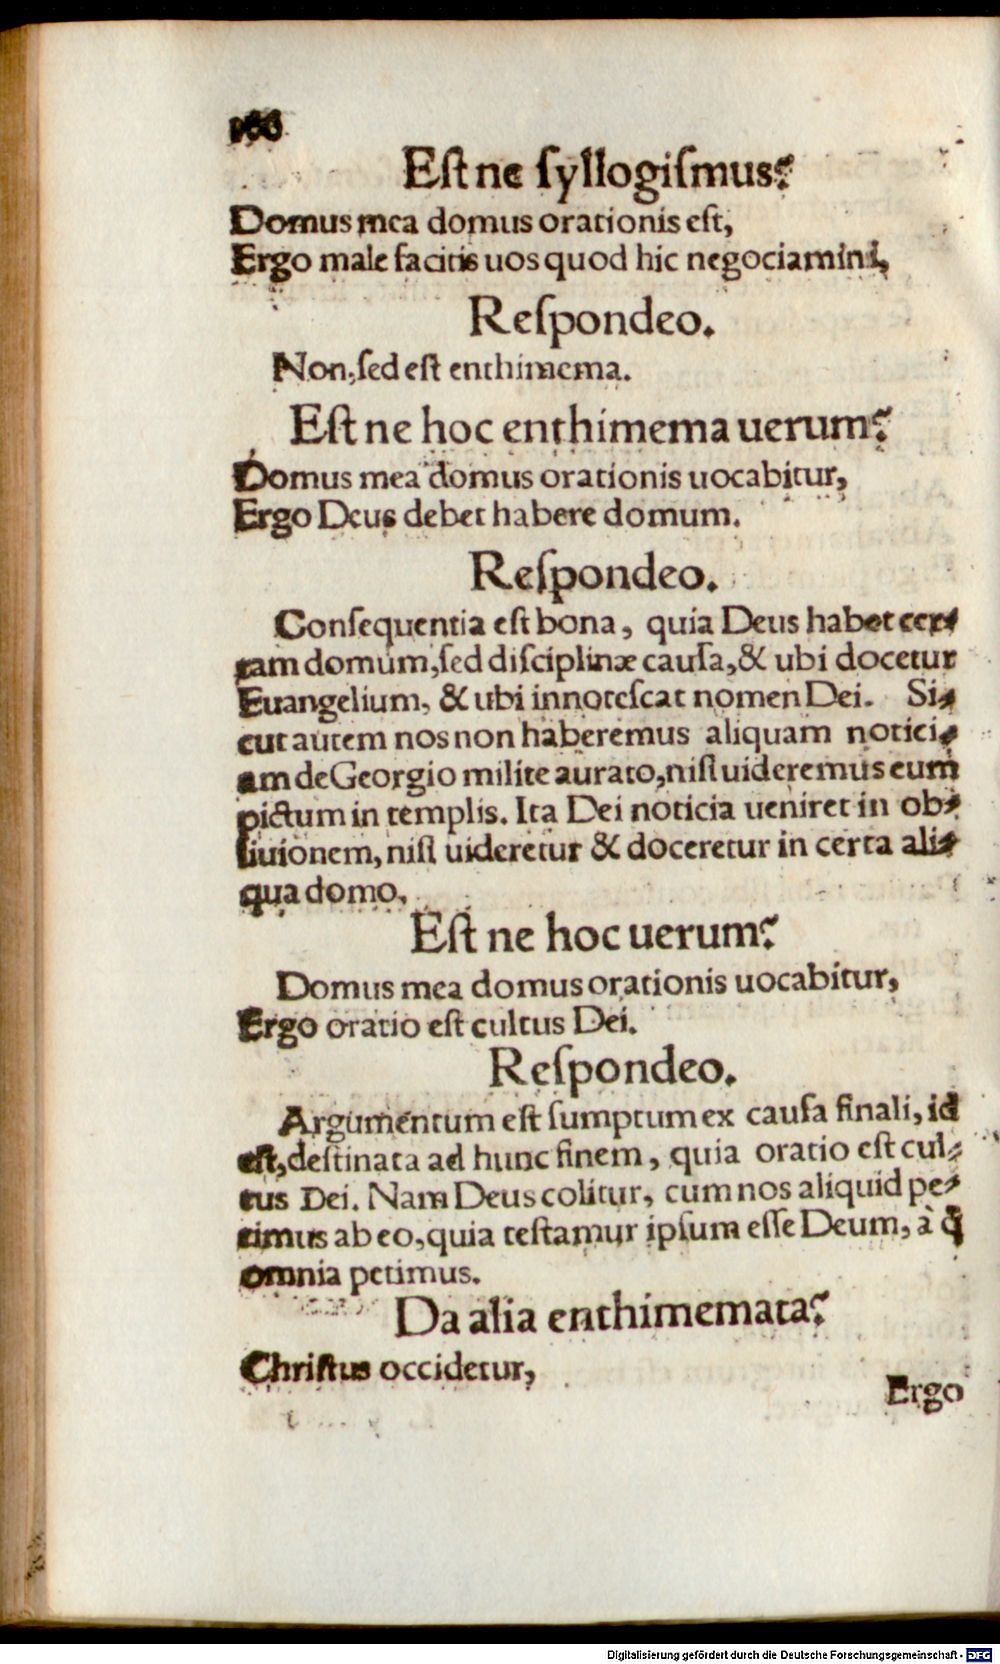 166
Eſt ne ſyllogiſmus?
Domus mea domus orationis eſt,
Ergo male facitis uos quod hic negociamini,
Reſpondeo.
Non, ſed eſt enthimema.
Eſt ne hoc enthimema uerum?
Domus mea domus orationis uocabitur,
Ergo Deus debet habere domum.
Reſpondeo.
Conſequentia eſt bona, quia Deus habet cer-
tam domum, ſed diſciplinæ cauſa, & ubi docetur
Euangelium, & ubi innoteſcat nomen Dei. Si-
cut autem nos non haberemus aliquam notici-
am de Georgio milite aurato, niſi uideremus eum
pictum in templis. Ita Dei noticia ueniret in ob-
liuionem, niſi uideretur & doceretur in certa ali-
qua domo.
Eſt ne hoc uerum?
Domus mea domus orationis uocabitur,
Ergo oratio eſt cultus Dei.
Reſpondeo.
Argumentum eſt ſumptum ex cauſa finali, id
eſt, deſtinata ad hunc finem, quia oratio eſt cul-
tus Dei. Nam Deus colitur, cum nos aliquid pe-
timus ab eo, quia teſtamur ipſum eſſe Deum, à q̃
omnia petimus.
Da alia enthimemata?
Chriſtus occidetur,
Ergo
Digitalisierung gefördert durch die Deutsche Forschungsgemeinschaft - DFG